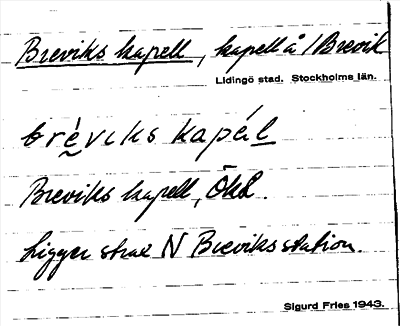 Breviks kapell, kapell å / Brevik
Lidingö stad. Stockholms län.
brèviks kapél
Breviks kapell, Ökk.
Ligger strax N Breviks station.
Sigurd Fries 1943.